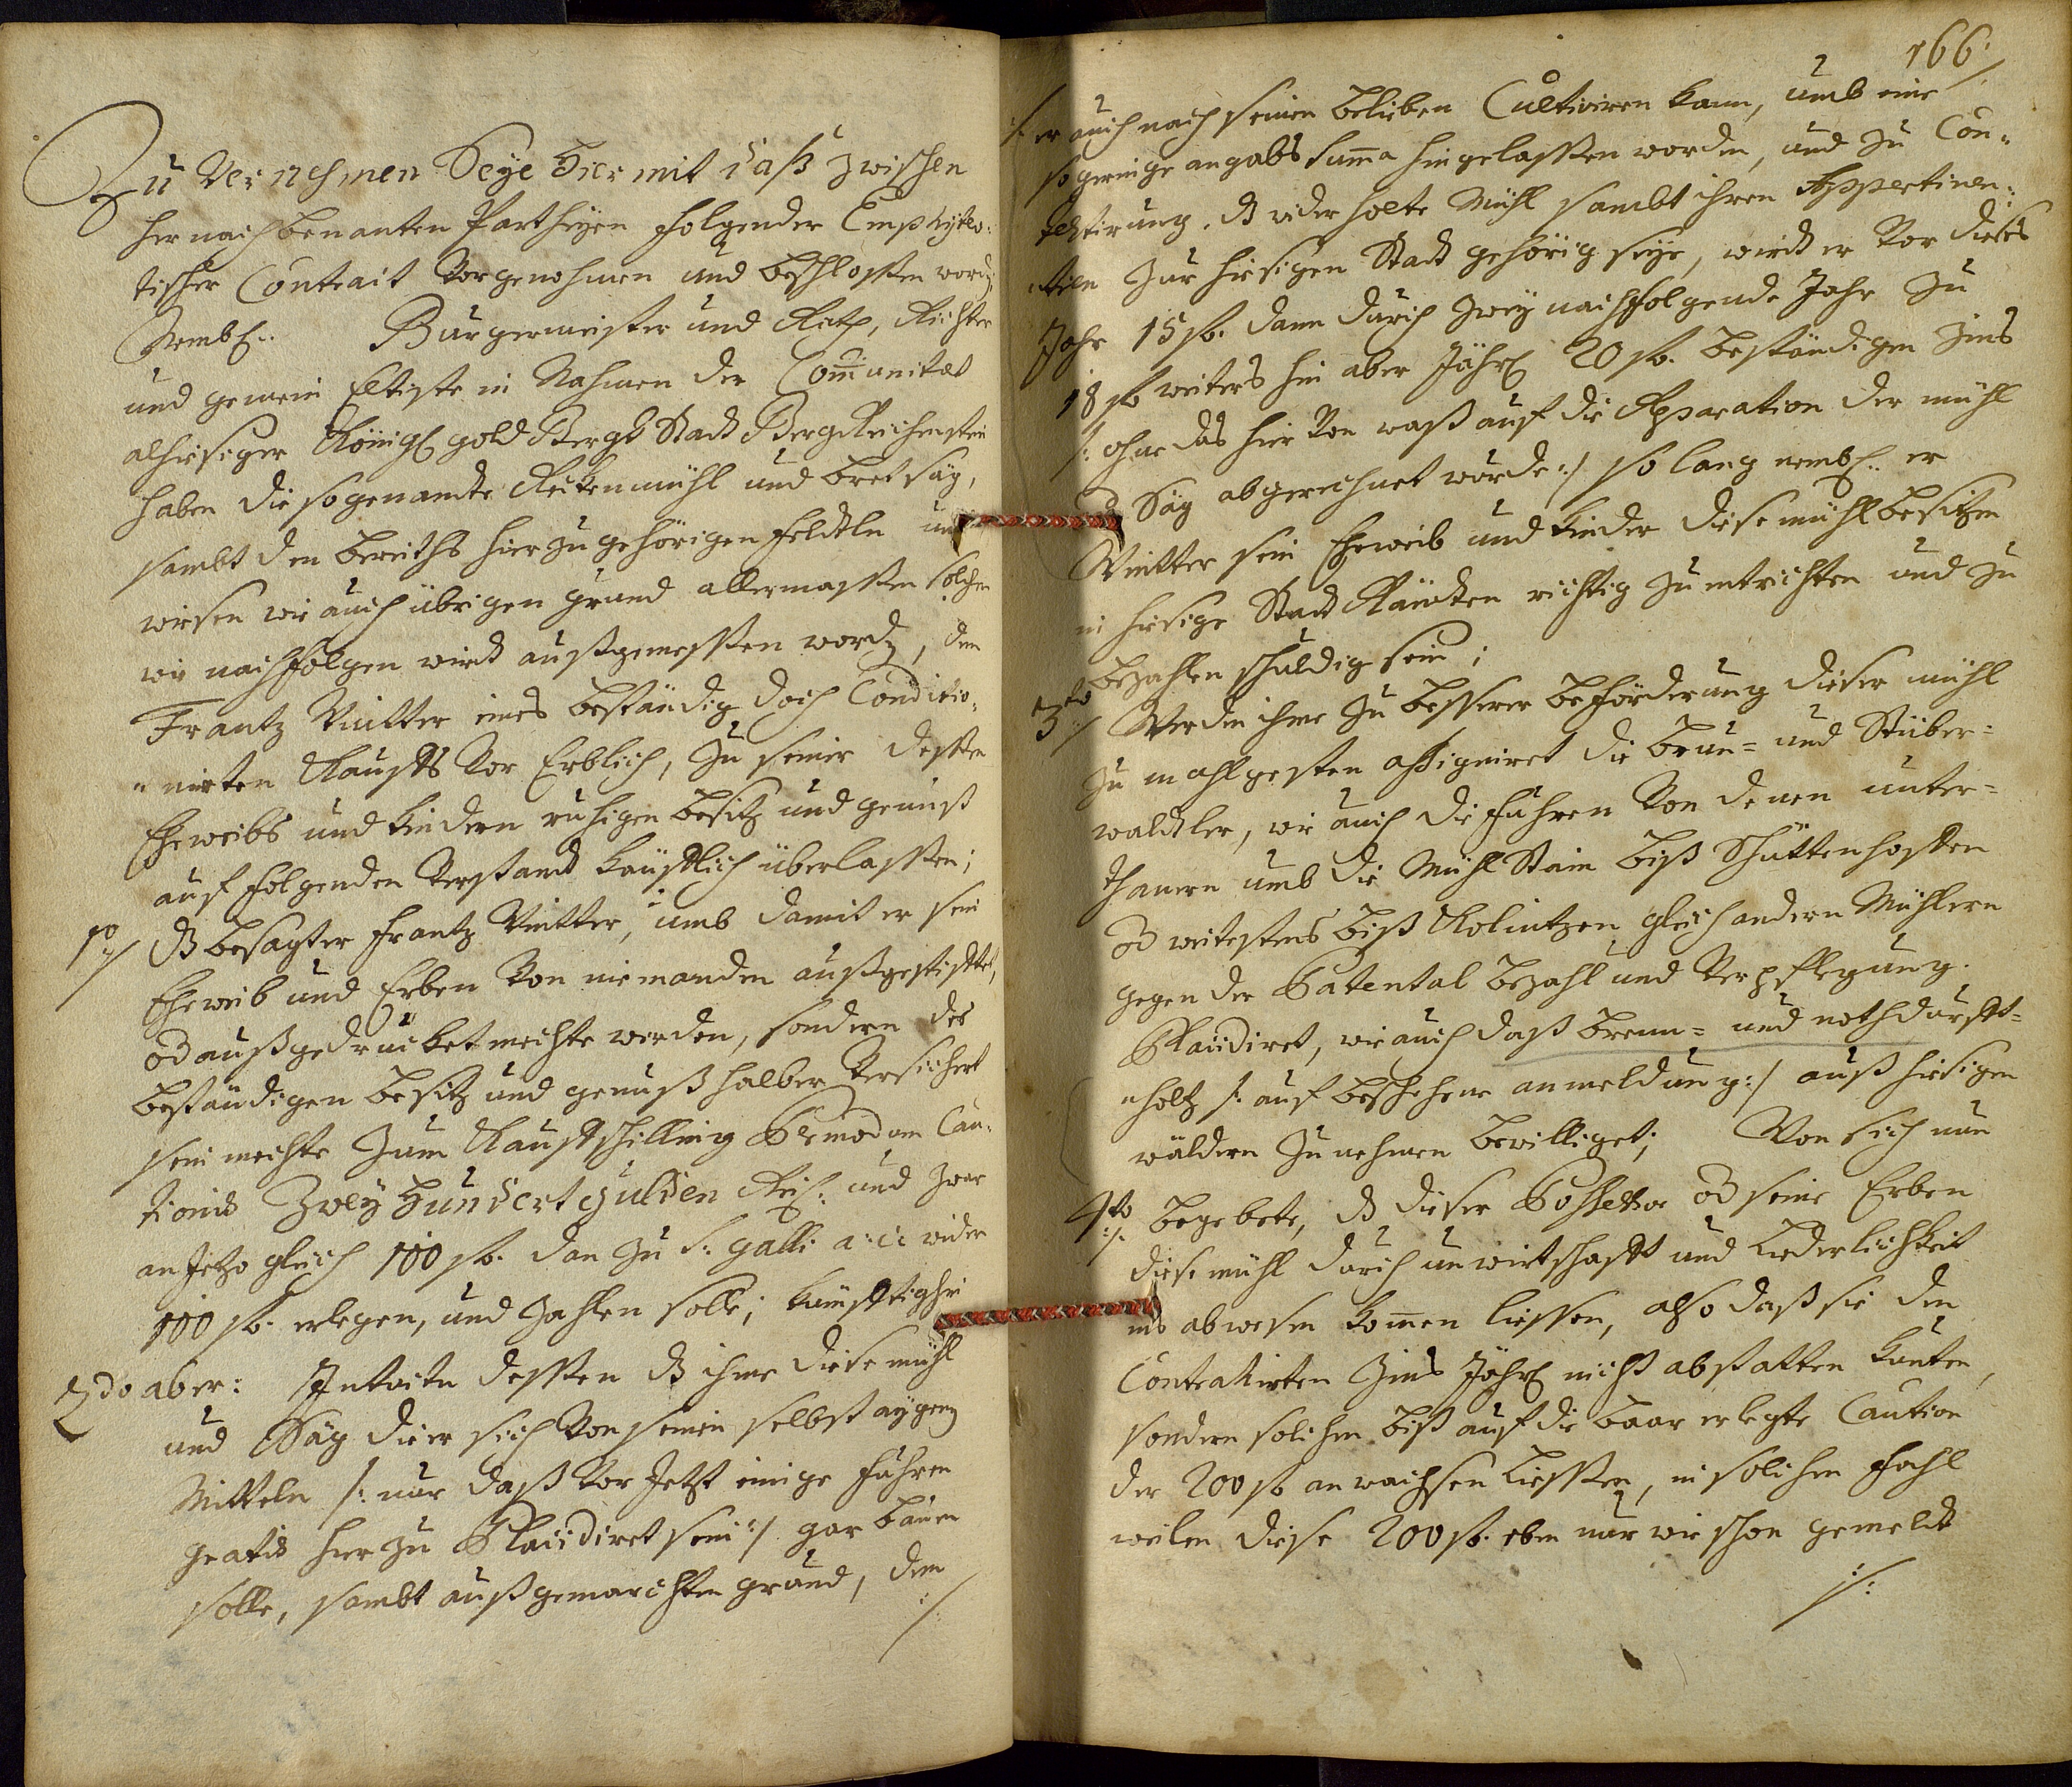 Zu Vernehmen Seye Hiermit daß zwischen
hernachbenanten Partheyen folgender Emphyteo:
tischer Contract vorgenohmen und beschlossen word
Nembl. Burgermeister und Rath, Richter
und gemein Eltiste in Nahmen der Communitæt
alhiesiger Königl gold Bergs Stadt BergReichenstein
haben die sogenandte Reckenmühl und bret säg,
sambt den bereiths hierzu gehörigen feldtln und
wiesen wie auch übrigen grund allermassen solcher
wie nachfolgen wirdt außgemessen word, dem
Frantz Vintter eines beständig doch Conditio:
"nirten Kaufs vor Erblich, zu seiner dessen
Eheweibs und Kindern ruhigen besitz und genuß
auf folgenden verstandt käufflich überlassen;
1mo/ dß besagter Frantz Vintter, umb damit er sein
Eheweib und Erben von niemanden außgestifftet,
od außgedrucket mechte werden, sondern des
beständigen besitz und genuß halber versichert
sein mechte zum Kaufschilling Per modum Cau:
tionis Zwey Hundert gulden Rei: und zwar
an Jetzo gleich 100 fl. dan zu S: galli a: c: wider
100 fl. erlegen, und zahlen solle; künfftighin
2do aber: Intuitu dessen dß ihme diese mühl
und Säg die er sich von seinen selbst aygen
Mitteln /: nur daß vor Jetzt einige fuhren
gratis hierzu Placidiret sein :/ gar bauen
solle, sambt außgemarchten grund, den
./.
166.
/: er auch nach seinen belieben Cultiviren kann, umb eine
so geringe angabs summa hingelassen worden, und zu Con:
testirung, dß widerholte Mühl sambt ihren Appertinen:
"tien zur hiesigen Stadt gehörig seye, wirdt er vor dieses
Jahr 15 fl. dann durch zwey nachfolgende Jahr zu
18 fl weiters hin aber Jährl 20 fl. beständigen Zins
/: ohne das hiervon waß auf die Reparation der mühl
und Säg abgerechnet wurde :/ so lang nembl. er
Vintter sein Eheweib und Kinder diese mühl besitzen
in hiesige Stadt Rändten richtig zu entrichten und zu
bezahlen schuldig sein;
3tio/ Werden ihme zu besserer beförderung dieser mühl
zu mahlgesten assigniret die brun= und Stuber=
waldtler, wie auch die fuhren von denen unter=
thanen umb die Mühl Stain biß Schüttenhoffen
od weitestens biß Kolintzen gleich andern Mühlern
gegen der Patental bezahl und verpflegung.
Placidiret, wie auch daß brenn= und nothdurfft=
"holtz /: auf beschehene anmeldung :/ auß hiesigen
wäldern zu nehmen bewilliget; Wan sich nun
4to/. begebete, dß dieser Possessor od seine Erben
diese mühl durch unwirtschafft und Liederlichkeit
ins abwesen kommen liessen, also daß sie den
Contrahirten Zins Jährl nicht abstatten kunten,
sondern solchen biß auf die baar erlegte Caution
der 200 fl anwachsen liessen, in solchen fahl
weilen diese 200 fl. eben nur wie schon gemeldt
./.